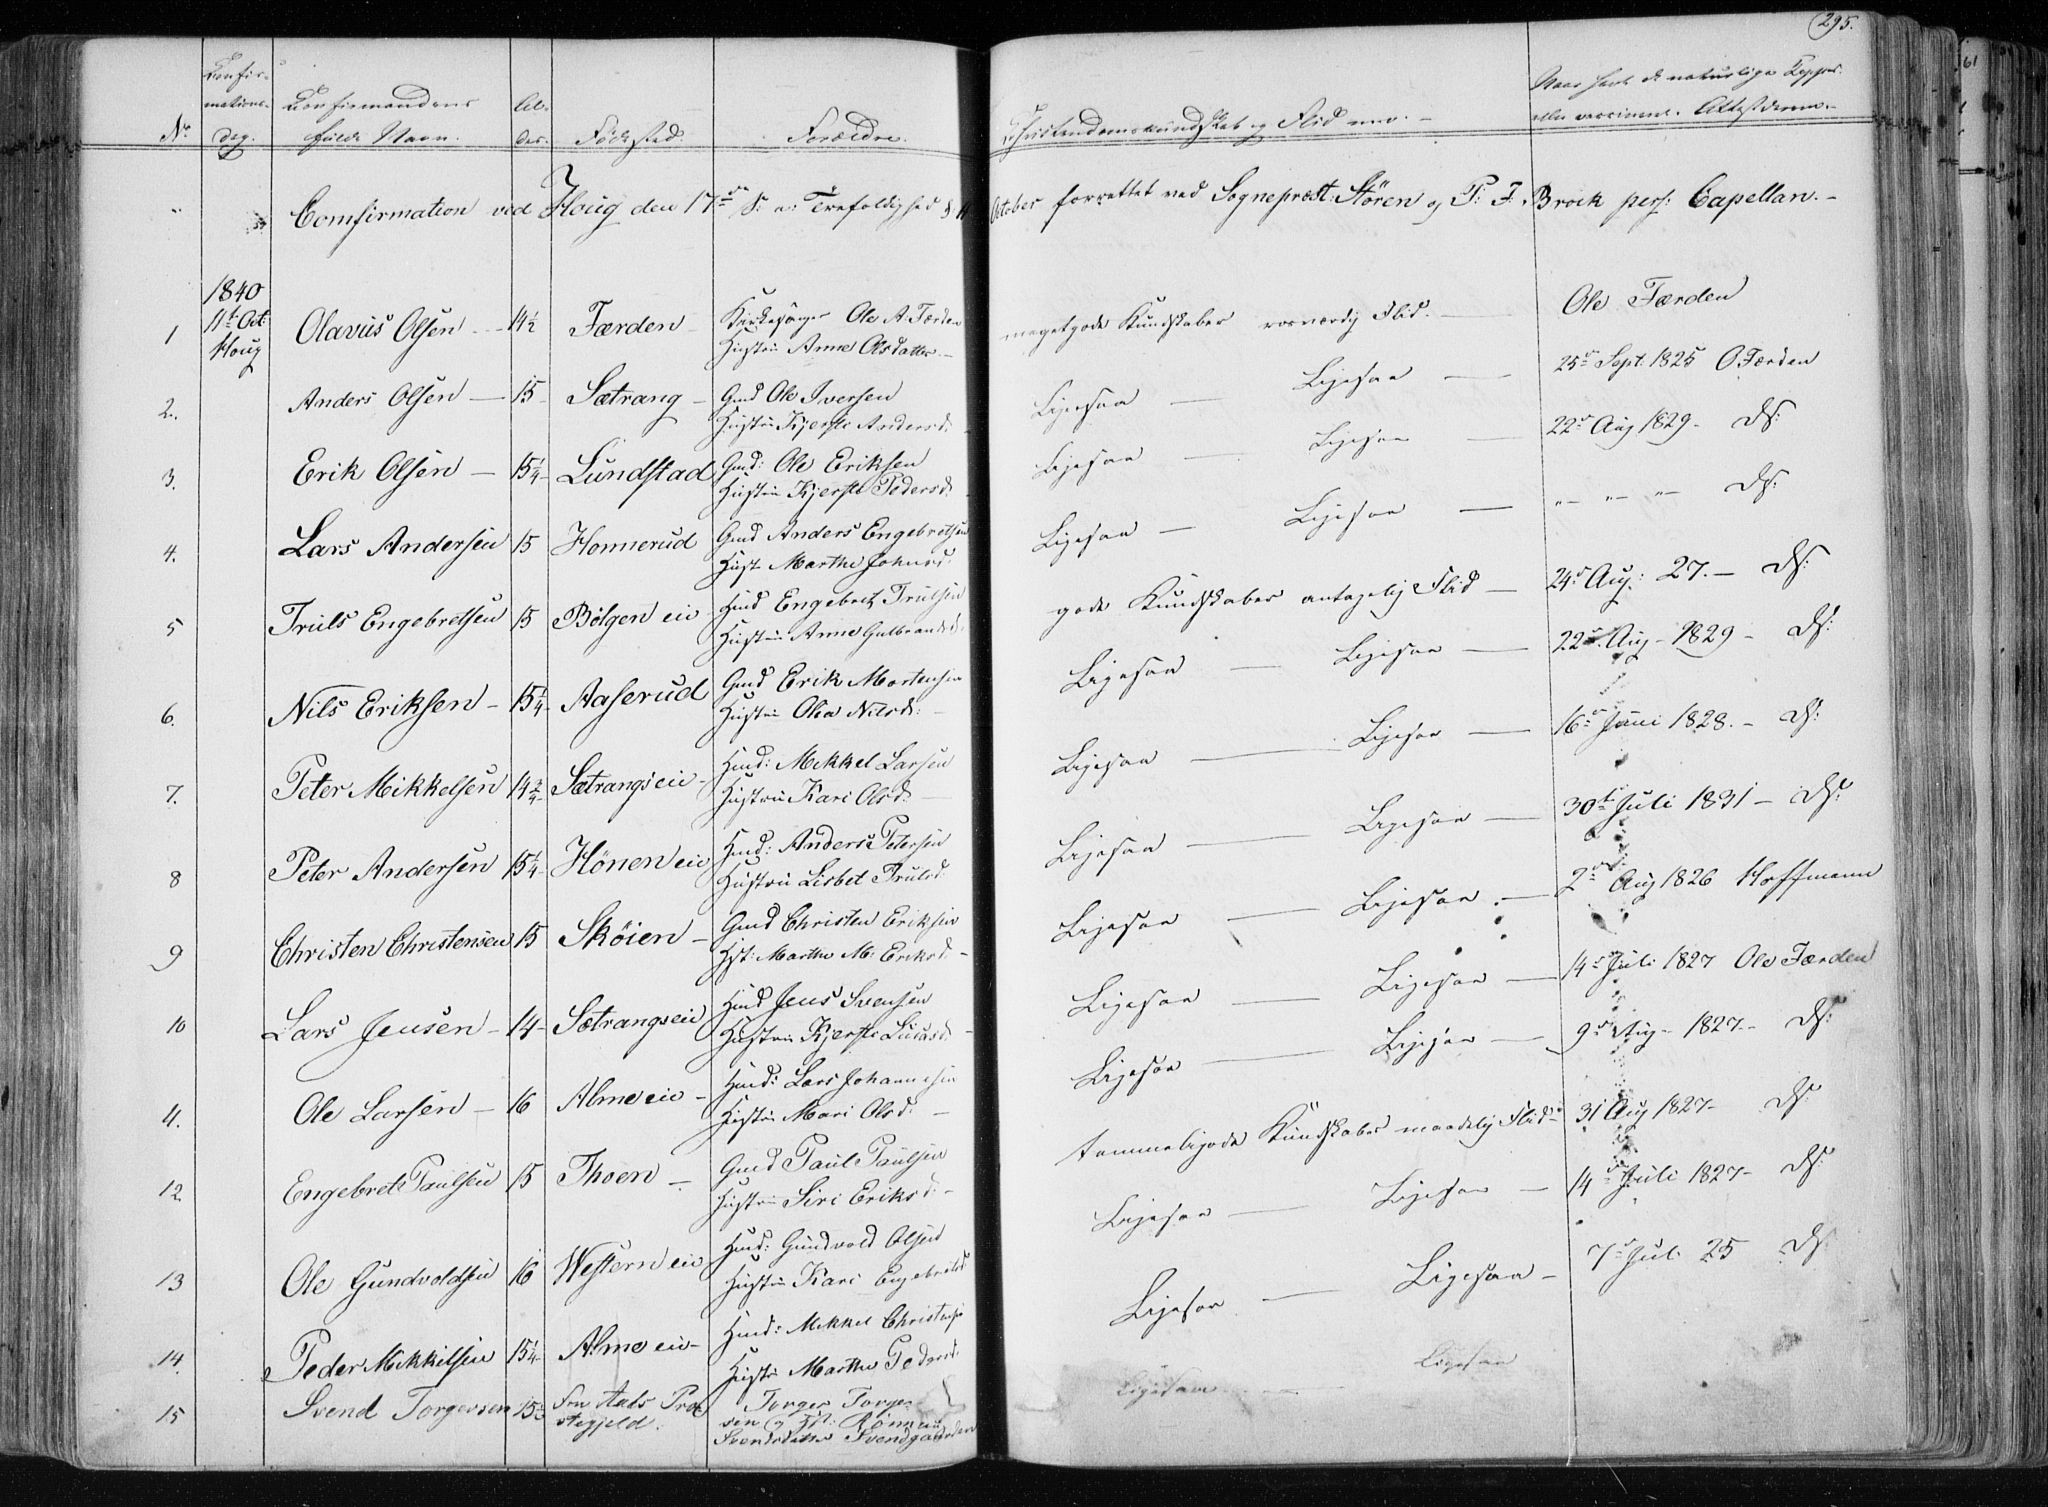 295.
No Confirmations- dag. Confirmandens fulde Navn. Al- der. Födested. Forældre. Christendomskundskab og Flid mv. Naar havt de naturlige Kopper eller vaccineret. Attesteren
Comfirmation ved Houg den 17de S: a: Trefoldighed d: 11 October forrettet ved Sognepræst: Stören og P: F: Brock pers: Capellan.
1840
11t Oct: Houg
1 Olavus Olsen 14½ Færden Kirkesanger Ole A. Færden
Hustru Anne Olsdatter.
megetgode Kundskaber roesværdig Flid. Ole Færden
2. Anders Olsen 15 Sætrang Gmd Ole Iversen
Hustru Kjersti Andersd.
Ligesaa Ligesaa 25de Sept: 1825 O Færden
3. Erik Olsen 15¼ Lundstad Gmd: Ole Eriksen
Hustru Kjersti Pedersd.
Ligesaa Ligesaa 22de Aug 1829. Ds:
4. Lars Andersen 15 Honnerud Gmd Anders Engebretsen
Hust Marthe Johnsd.
Ligesaa Ligesaa " " " Ds:
5 Truls Engebretsen 15 Bölgen eie Hmd Engebret Trulsen
Hustru Anne Gulbrandsd.
gode Kundskaber antagelig Flid 24de Aug: 27. Ds:
6. Nils Eriksen 15¼ Aaserud Gmd Erik Mortensen
Hustru Olea Nilsd:
Ligesaa Ligesaa 22de Aug 1829 Ds:
7. Peter Mikkelsen 14¾ Sætrangseie Hmd: Mikkel Larsen
Hustru Kari Olsd.
Ligesaa Ligesaa 16de Juni 1828. Ds:
8 Peter Andersen 15¼ Hönen eie Hmd: Anders Petersen
Hustru Lisbet Trulsd:
Ligesaa Ligesaa 30te Juli 1831 Ds:
9 Christen Christensen 15 Sköien Gmd Christen Eriksen
Hst: Marthe M: Eriksd:
Ligesaa Ligesaa 2de Aug 1826 Hoffmann
10 Lars Jensen 14 Sætrangseie Hmd Jens Svensen
Hustru Kjersti Lucasd:
Ligesaa Ligesaa 14de Juli 1827 Ole Færden
4. Ole Larsen 16 Alme eie Hmd: Lars Johannesen
Hustru Mari Olsd:
Ligesaa Ligesaa 9de Aug 1827. Ds:
12. Engebret Paulsen 15 Thoen Gmd Paul Paulsen
Hustru Siri Eriksd:
temmeligode Kundskaber maadelig Flid 31 Aug 1827 Ds:
13 Ole Gundvoldsen 16 Western eie Hmd: Gundvold Olsen
Hustru Kari Engebretsd
Ligesaa Ligesaa 14de Juli 1827 Ds:
14. Peder Mikkelsen 15¼ Alme eie Hmd: Mikkel Christensen
Hustru Marthe Pedersd:
Ligesaa Ligesaa 7de Juli 25 Ds:
15 Svend Torgersen 15½ Fra Aals Præ
stegjeld. Torger Torger
sen og Hst: Rönnau
Svendsdatter Svendgaarden
Ligesaa Ligesaa
61